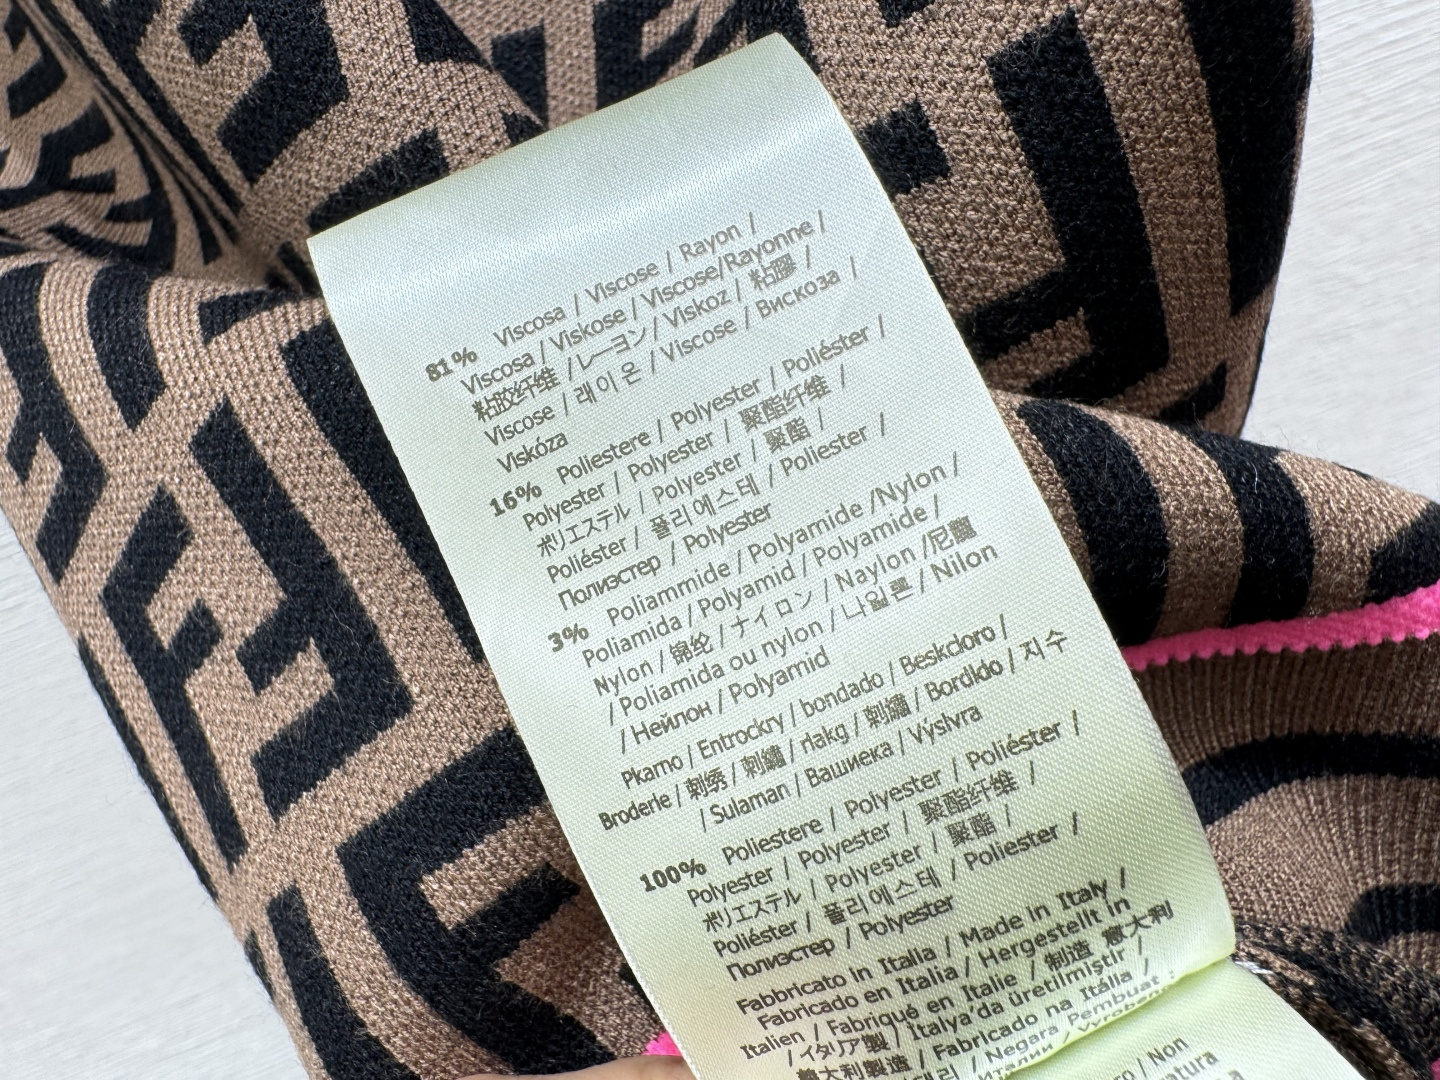 81% Viscosa / Viscose / Rayon /
Viscosa / Viskose / Viscose/Rayonne /
粘胶纤维 /レーヨン/ Viskoz / 粘膠 /
Viscose / 래이온 / Viscose / Вискоза /
Viskóza
16% Poliestere / Polyester / Poliéster /
Polyester / Polyester / 聚酯纤维 /
ポリエステル / Polyester / 聚酯 /
Poliéster / 폴리에스테 / Poliester /
Полиэстер / Polyester
3% Poliammide / Polyamide /Nylon /
Poliamida / Polyamid / Polyamide /
Nylon / 锦纶 / ナイロン / Naylon /尼龍
/ Poliamida ou nylon / 나일론 / Nilon
/ Нейлон / Polyamid
Pkamo / Entrockry / bondado / Beskcloro /
Broderle / 刺绣 / 刺繡 / rlakg / 刺繡 / Bordldo / 지수
/ Sulaman / Вашиека / Výslvra
100% Poliestere / Polyester / Poliéster /
Polyester / Polyester / 聚酯纤维 /
ポリエステル / Polyester / 聚酯 /
Poliéster / 폴리에스테 / Poliester /
Полиэстер / Polyester
Fabbricato in Italia / Made in Italy /
Fabricado en Italia / Hergestellt in
Italien / Fabriqué en Italie / 制造 意大利
/ イタリア製 / Italya'da üretilmiştir /
義大利製造 / Fabricado na Itália /
/ Negara Pembuat :
/ Non